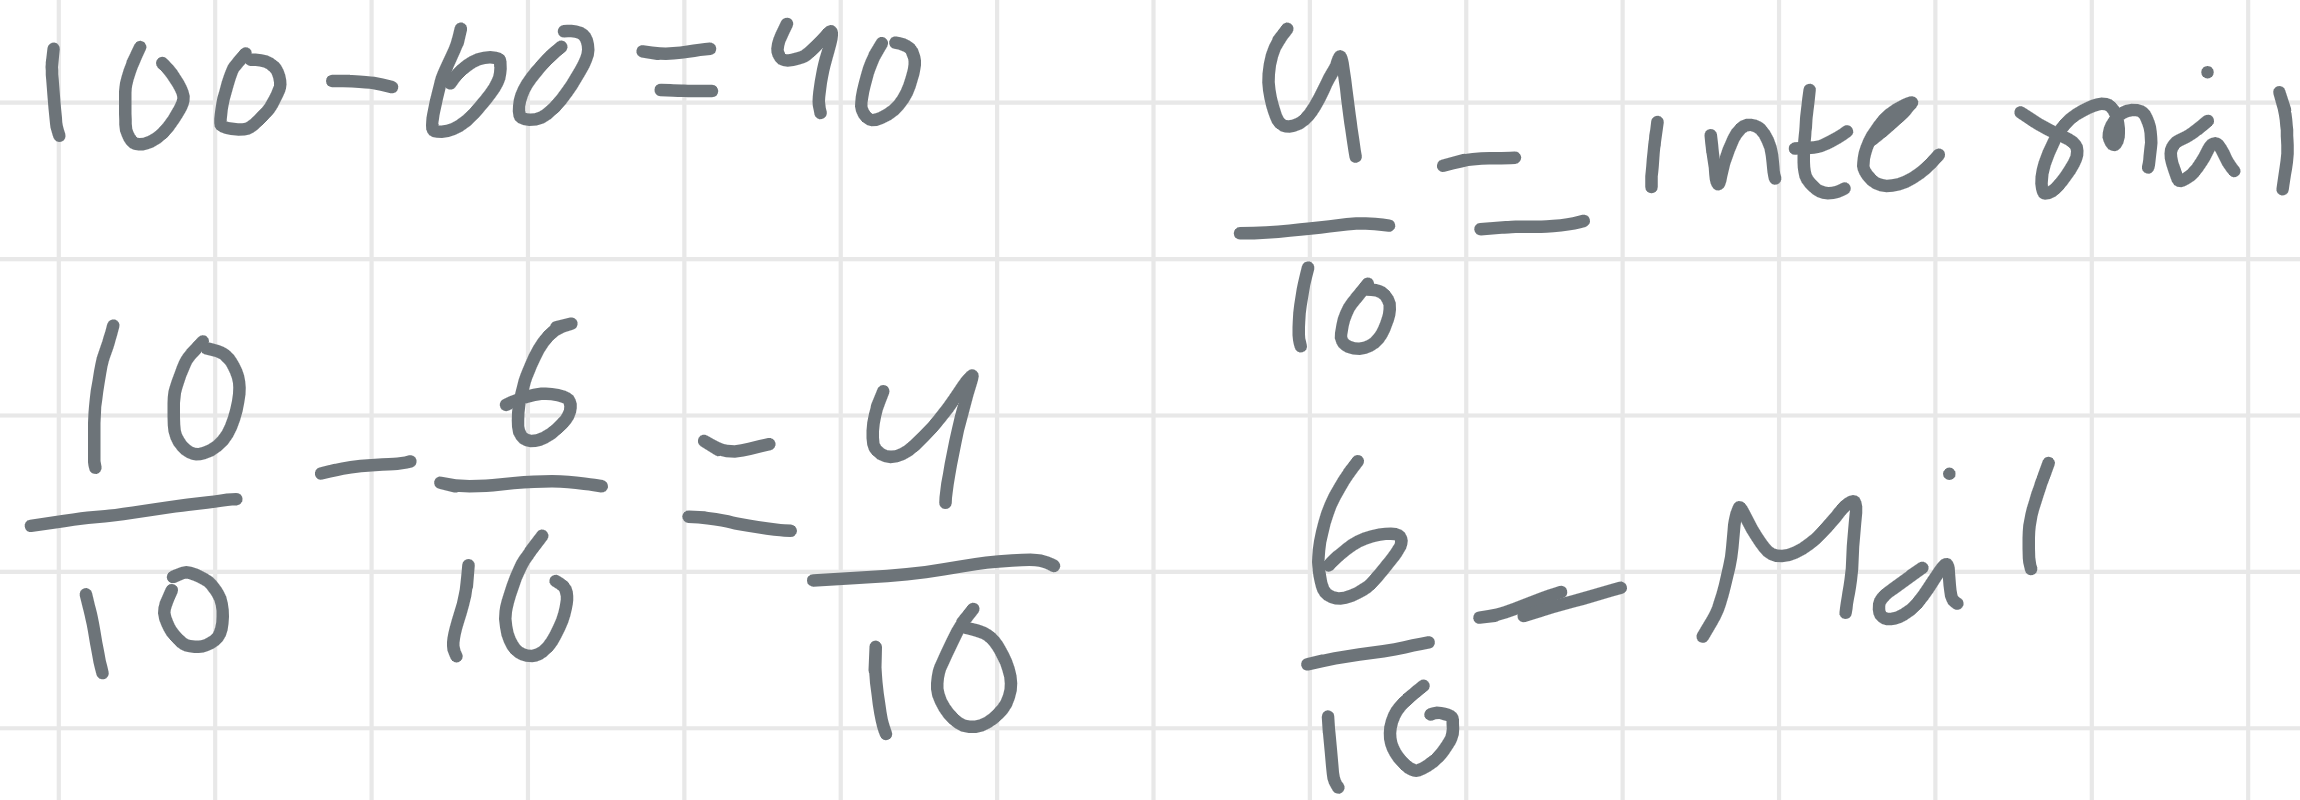 100 - 60 = 40
10/10 - 6/10 = 4/10
4/10 = inte mål
6/10 - Mål